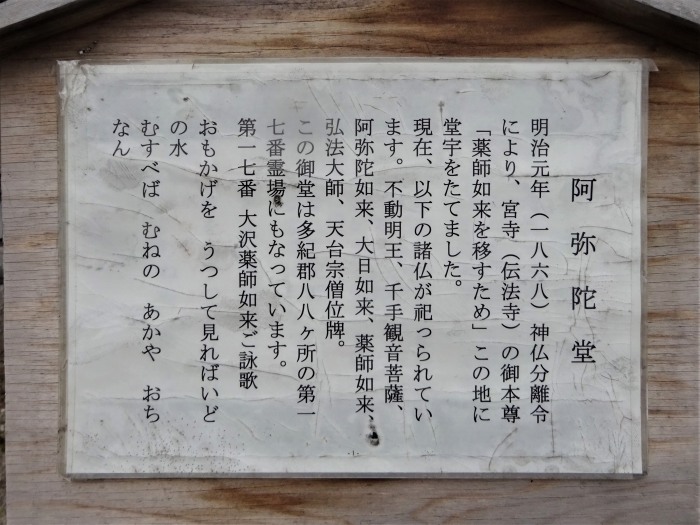 阿弥陀堂
明治元年（一八六八）神仏分離令
により、宮寺（伝法寺）の御本尊
「薬師如来を移すため」この地に
堂宇をたてました。
現在、以下の諸仏が祀っられてい
ます。不動明王、千手観音菩薩、
阿弥陀如来、大日如来、薬師如来、
弘法大師、天台宗僧位牌。
この御堂は多紀郡八八ヶ所の第一
七番霊場にもなっています。
第一七番 大沢薬師如来ご詠歌
おもかげを うつして見ればいど
の水
むすべば むねの あかや おち
なん